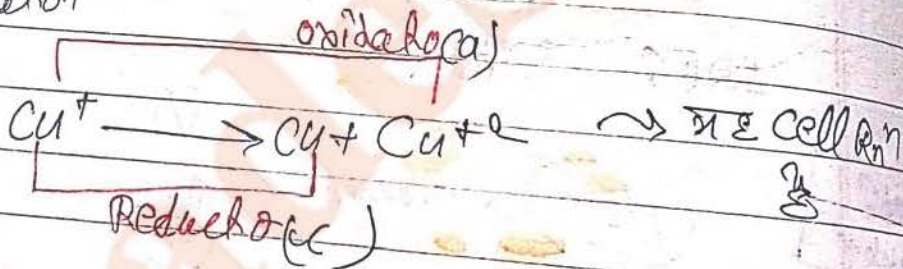 oxidatio(a)
Cu⁺ ⟶ Cu + Cu⁺² ⤳ यह Cell Rnⁿ
है
Reductio(c)